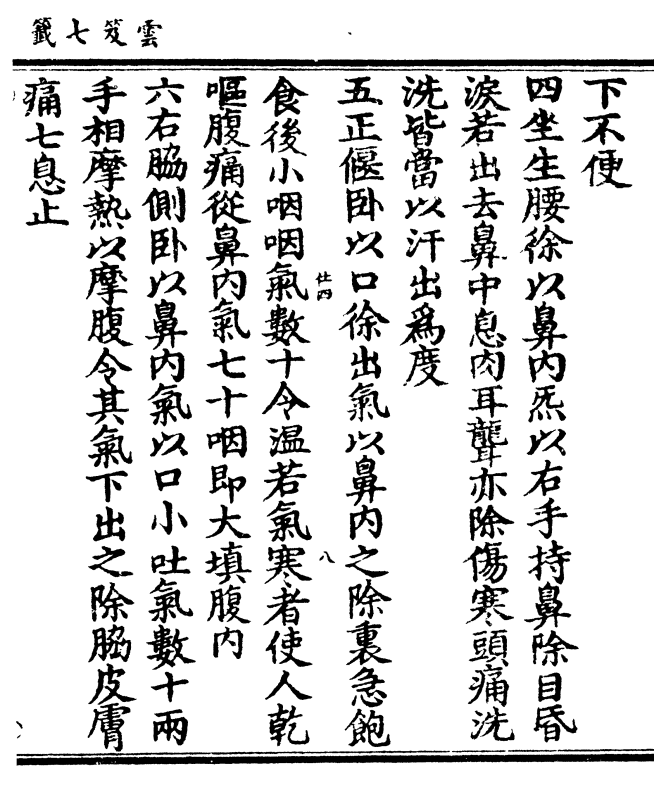 雲笈七籤
下不便
四坐生腰徐以鼻内炁以右手持鼻除目昏
淚若出去鼻中息肉耳聾亦除傷寒頭痛洗
洗皆當以汗出爲度
五正偃卧以口徐出氣以鼻内之除裏急飽
食後小咽咽氣數十令温若氣寒者使人乾
嘔腹痛從鼻内氣七十咽即大填腹内
六右脇側卧以鼻内氣以口小吐氣數十兩
手相摩熱以摩腹令其氣下出之除脇皮膚
痛七息止
廿四
八